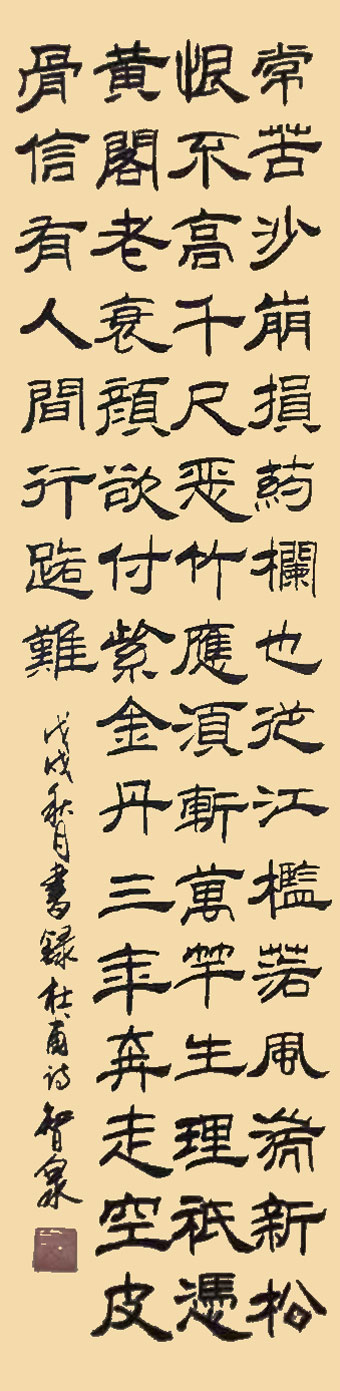 常苦沙崩損葯欄也従江檻落風湍新松
恨不高千尺惡竹應須斬萬竿生理祇憑
黄閣老衰顔欲付紫金丹三年奔走空皮
骨信有人間行路難
戊戌秋月書録杜甫诗智泉